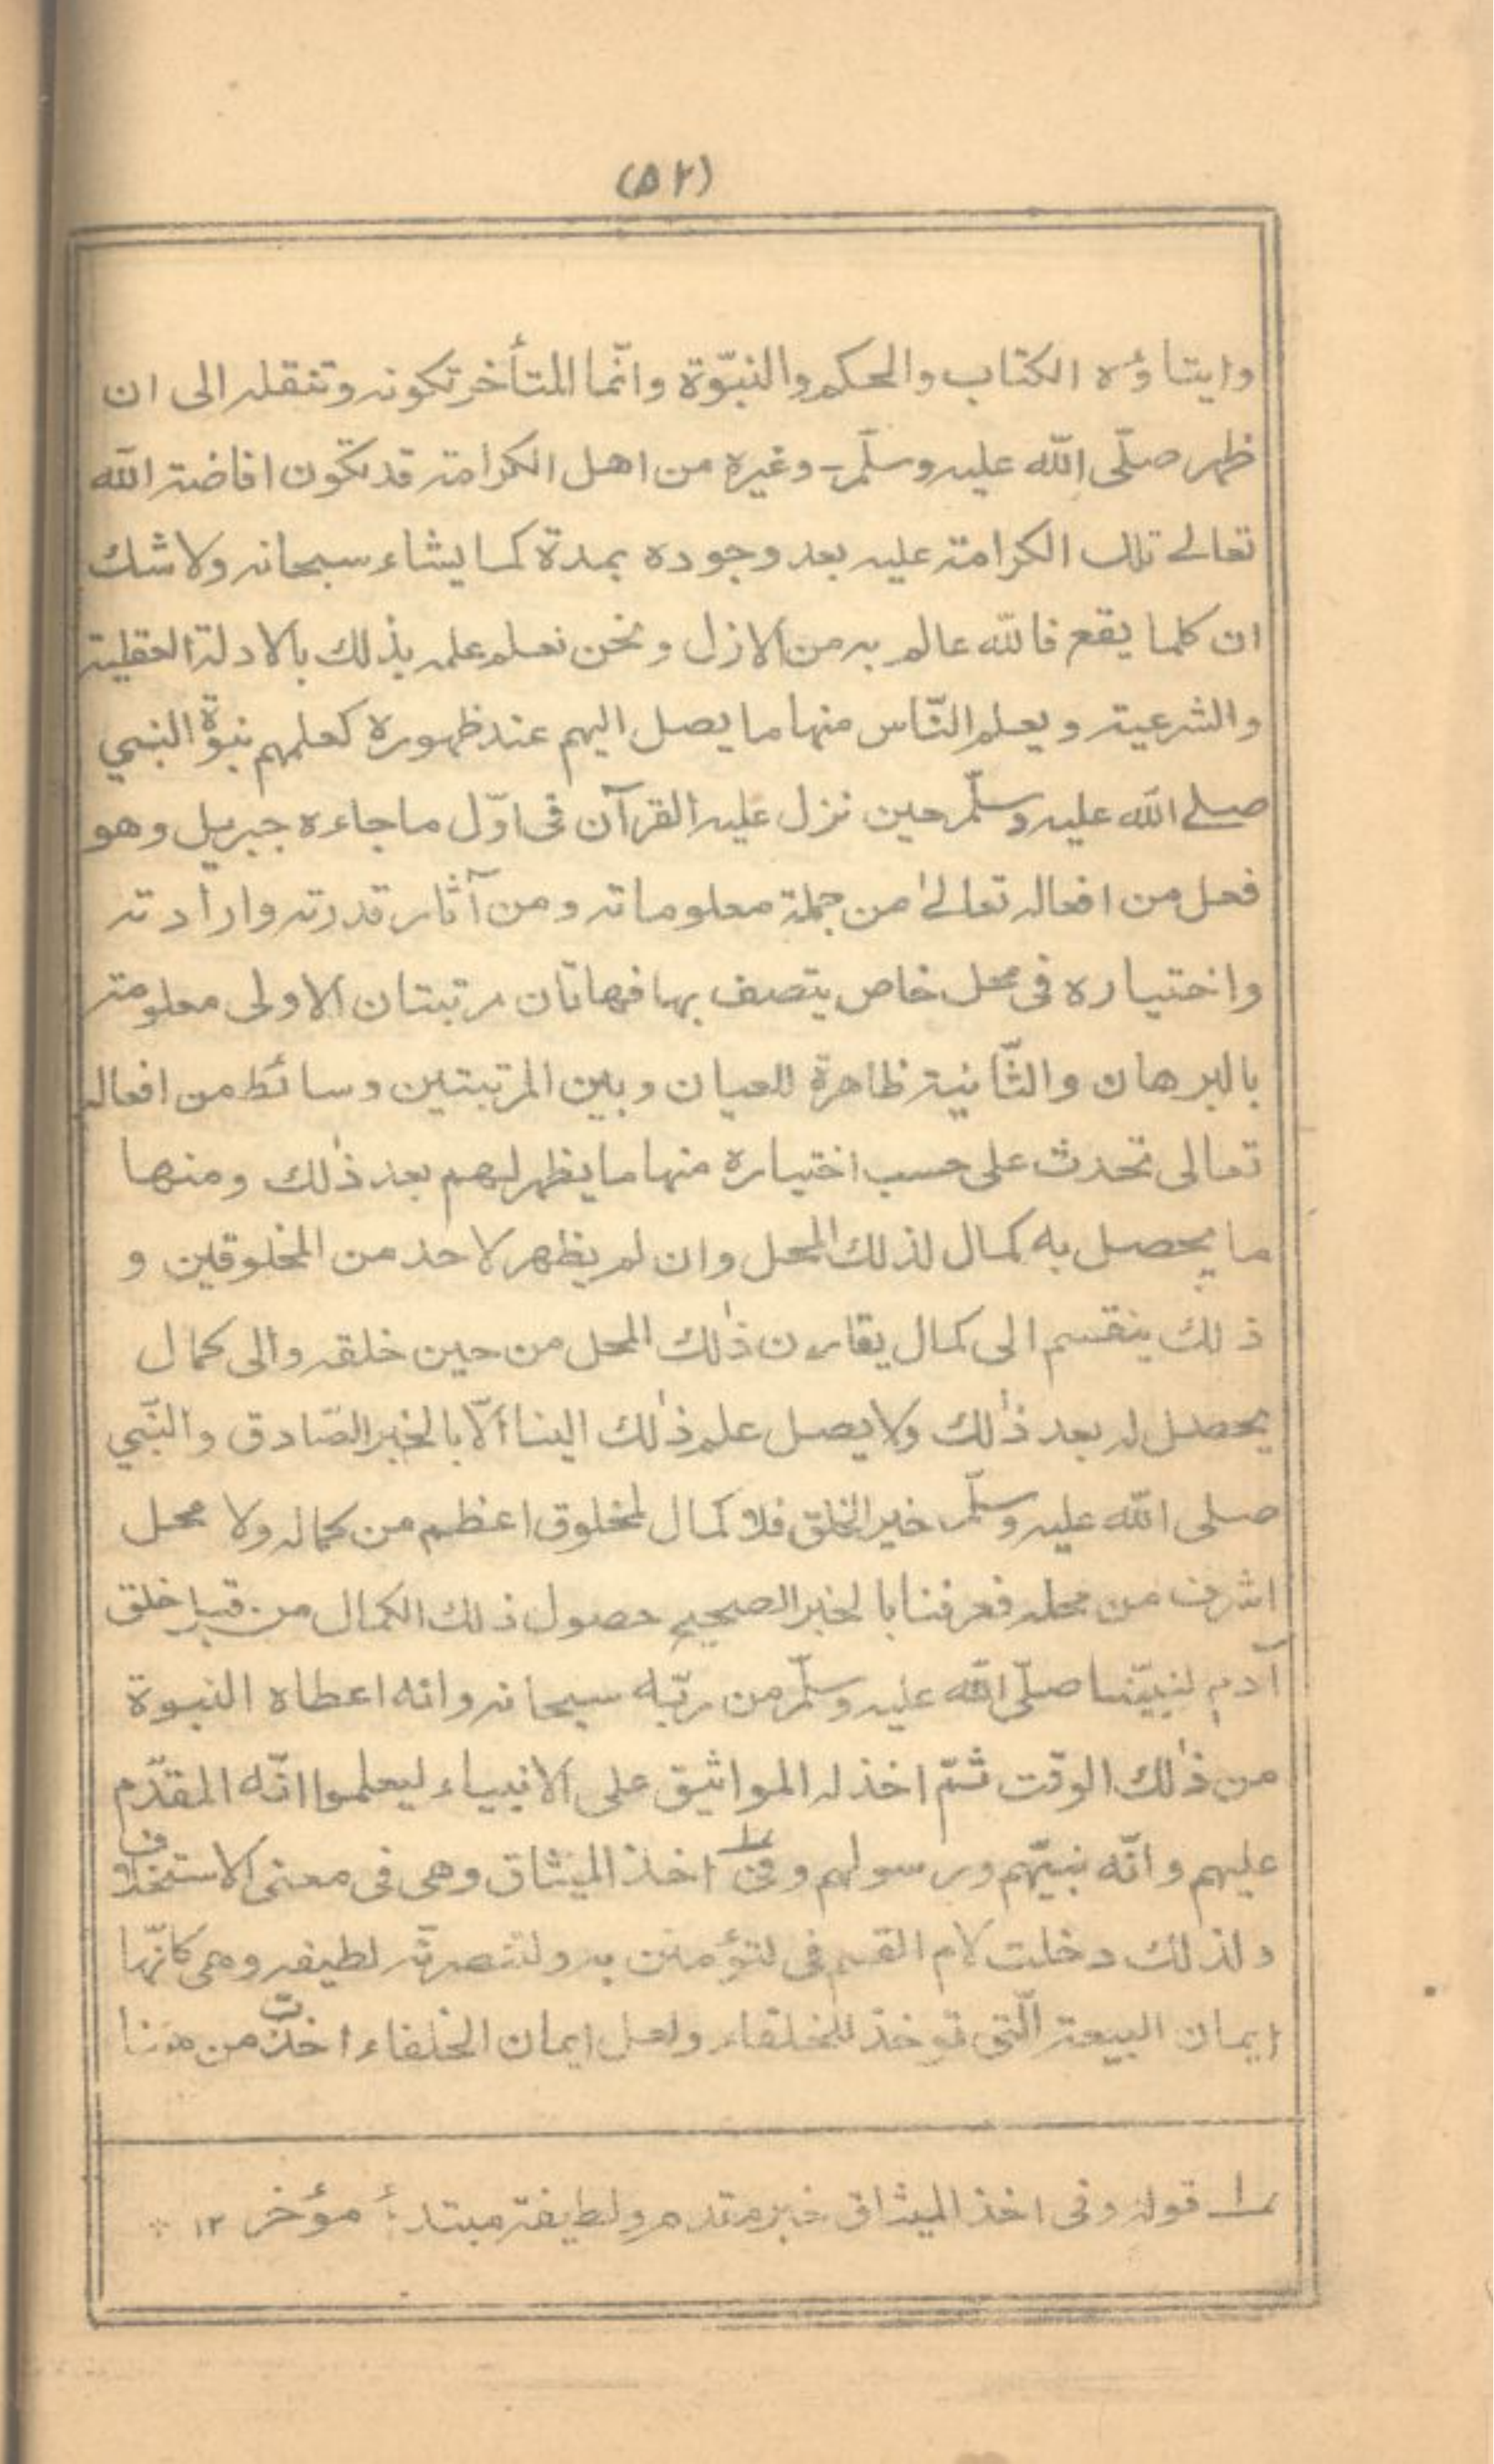 (۵۲)
وايتاؤه الكتاب والحكم والنبوّة وانّما المتأخر تكونه وتنقله الى ان
ظهر صلّى الله عليه وسلّم - وغيره من اهل الكرامة قد تكون افاضة الله
تعالے تلك الكرامة عليه بعد وجوده بمدة كما يشاء سبحانه ولا شك
ان كلما يقع فالله عالم به من الازل و نحن نعلم علمه بذلك بالادلة العقلية
والشرعية و يعلم النّاس منها ما يصل اليهم عند ظهوره كعلمهم نبوّة النبي
صلے الله عليه وسلّم حين نزل عليه القرآن فى اوّل ما جاءه جبريل وهو
فعل من افعاله تعالےٰ من جملة معلوماته ومن آثار قدرته وارادته
واختياره فى محل خاص يتصف بها فهاتان مرتبتان الاولى معلومة
بالبرهان والثّانية ظاهرة للعيان و بين المرتبتين وسائط من افعاله
تعالى تحدث على حسب اختياره منها ما يظهر لهم بعد ذٰلك ومنها
ما يحصل به كمال لذلك المحل وان لم يظهر لاحد من المخلوقين و
ذلك ينقسم الى كمال يقارن ذٰلك المحل من حين خلقه والى كمال
يحصل له بعد ذٰلك ولا يصل علم ذٰلك الينا الّا بالخبر الصّادق والنّبي
صلى الله عليه وسلّم خير الخلق فلا كمال لمخلوق اعظم من كماله ولا محل
اشرف من محله فعرفنا بالخبر الصحيح حصول ذلك الكمال من قبل خلق
آدم لنبيّنا صلّى الله عليه وسلّم من ربّه سبحانه وانه اعطاه النبوة
من ذٰلك الوقت ثمّ اخذ له المواثيق على الانبياء ليعلموا انّه المقدّم
عليهم وانّه نبيّهم ورسولهم وفى اخذ الميثاق وهى فى معنى الاستخلاف
ولذلك دخلت لام القسم فى لتؤمنن به ولتنصرنّه لطيفه وهى كانّها
ايمان البيعة الّتى توخذ للخلفاء ولعل ايمان الخلفاء اخذت من هنا
ا؎ قوله وفى اخذ الميثاق خبر مقدم ولطيفة مبتدأ مؤخر ١٢